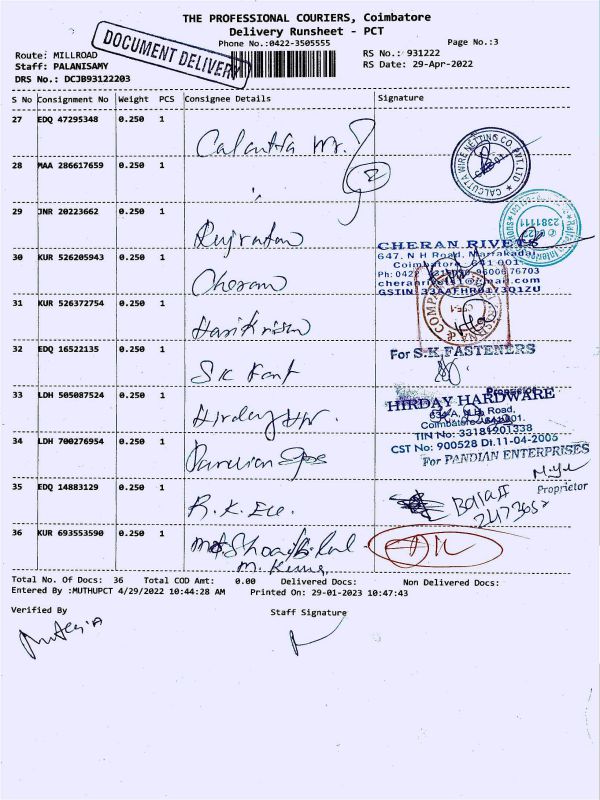 THE PROFESSIONAL COURIERS, Coimbatore
Delivery Runsheet - PCT
Phone No.:0422-3505555
Page No.:3
DOCUMENT DELIVERY
Route: MILLROAD
Staff: PALANISAMY
DRS No.: DCJB93122203
RS No.: 931222
RS Date: 29-Apr-2022
S No Consignment No Weight PCS Consignee Details Signature
27 EDQ 47295348 0.250 1 Calcutta
CALCUTTA WIRE NETTING CO. PVT. LTD
28 MAA 286617659 0.250 1
2
29 JNR 20223662 0.250 1
2381111
30 KUR 526205943 0.250 1 Cheran
CHERAN RIVETS
647, N H Road, Marrakadai
Coimbatore 641 001
cheranrivet@gmail.com
GSTIN 33AAFHR0173Q1ZU
31 KUR 526372754 0.250 1 Harikrisna
& COMPANY
32 EDQ 16522135 0.250 1 SK Fant
For S.K.FASTENERS
33 LDH 505087524 0.250 1 Hirday HW.
Proprietor
HIRDAY HARDWARE
634-A, N.H. Road,
Coimbatore 641001.
TIN No: 33181901338
CST No: 900528 Dt.11-04-2005
34 LDH 700276954 0.250 1 Pandian
For PANDIAN ENTERPRISES
Proprietor
35 EDQ 14883129 0.250 1 R.K. Ele.
36 KUR 693553590 0.250 1
Total No. Of Docs: 36 Total COD Amt: 0.00 Delivered Docs: Non Delivered Docs:
Entered By :MUTHUPCT 4/29/2022 10:44:28 AM Printed On: 29-01-2023 10:47:43
Verified By Staff Signature